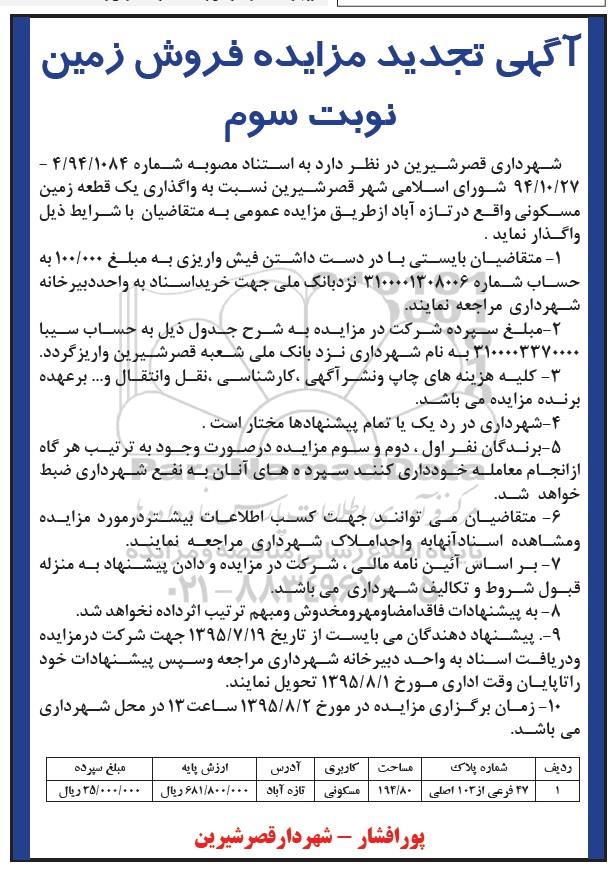 آگهی تجدید مزایده فروش زمین
نوبت سوم
شهرداری قصرشیرین در نظر دارد به استناد مصوبه شماره ۴/۹۴/۱۰۸۴ -
۹۴/۱۰/۲۷ شورای اسلامی شهر قصرشیرین نسبت به واگذاری یک قطعه زمین
مسکونی واقع درتازه آباد ازطریق مزایده عمومی به متقاضیان با شرایط ذیل
واگذار نماید .
۱- متقاضیان بایستی با در دست داشتن فیش واریزی به مبلغ ۱۰۰/۰۰۰ به
حساب شماره ۳۱۰۰۰۰۱۳۰۸۰۰۶ نزدبانک ملی جهت خریداسناد به واحددبیرخانه
شهرداری مراجعه نمایند.
۲-مبلغ سپرده شرکت در مزایده به شرح جدول ذیل به حساب سیبا
۳۱۰۰۰۰۳۳۷۰۰۰۰ به نام شهرداری نزد بانک ملی شعبه قصرشیرین واریزگردد.
۳- کلیه هزینه های چاپ ونشرآگهی ،کارشناسی ،نقل وانتقال و... برعهده
برنده مزایده می باشد.
۴-شهرداری در رد یک یا تمام پیشنهادها مختار است .
۵-برندگان نفر اول ، دوم و سوم مزایده درصورت وجود به ترتیب هر گاه
ازانجام معامله خودداری کنند سپرده های آنان به نفع شهرداری ضبط
خواهد شد.
۶- متقاضیان می توانند جهت کسب اطلاعات بیشتردرمورد مزایده
ومشاهده اسنادآنهابه واحداملاک شهرداری مراجعه نمایند.
۷- بر اساس آئین نامه مالی ، شرکت در مزایده و دادن پیشنهاد به منزله
قبول شروط و تکالیف شهرداری می باشد.
۸- به پیشنهادات فاقدامضاومهرومخدوش ومبهم ترتیب اثرداده نخواهد شد.
۹-. پیشنهاد دهندگان می بایست از تاریخ ۱۳۹۵/۷/۱۹ جهت شرکت درمزایده
ودریافت اسناد به واحد دبیرخانه شهرداری مراجعه وسپس پیشنهادات خود
راتاپایان وقت اداری مورخ ۱۳۹۵/۸/۱ تحویل نمایند.
۱۰- زمان برگزاری مزایده در مورخ ۱۳۹۵/۸/۲ ساعت۱۳ در محل شهرداری
می باشد.
ردیف شماره پلاک مساحت کاربری آدرس ارزش پایه مبلغ سپرده
۱ ۴۷ فرعی از۱۰۳ اصلی ۱۹۴/۸۰ مسکونی تازه آباد ۶۸۱/۸۰۰/۰۰۰ ریال ۳۵/۰۰۰/۰۰۰ ریال
پورافشار – شهردارقصرشیرین